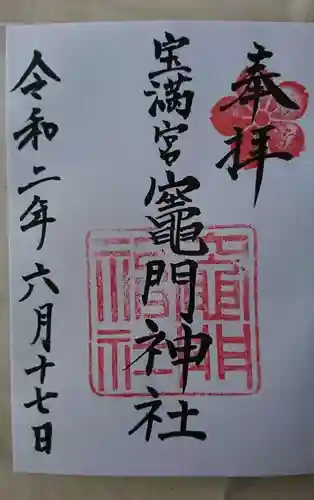 奉拝
宝満宮竈門神社
令和二年六月十七日
竈門
神社